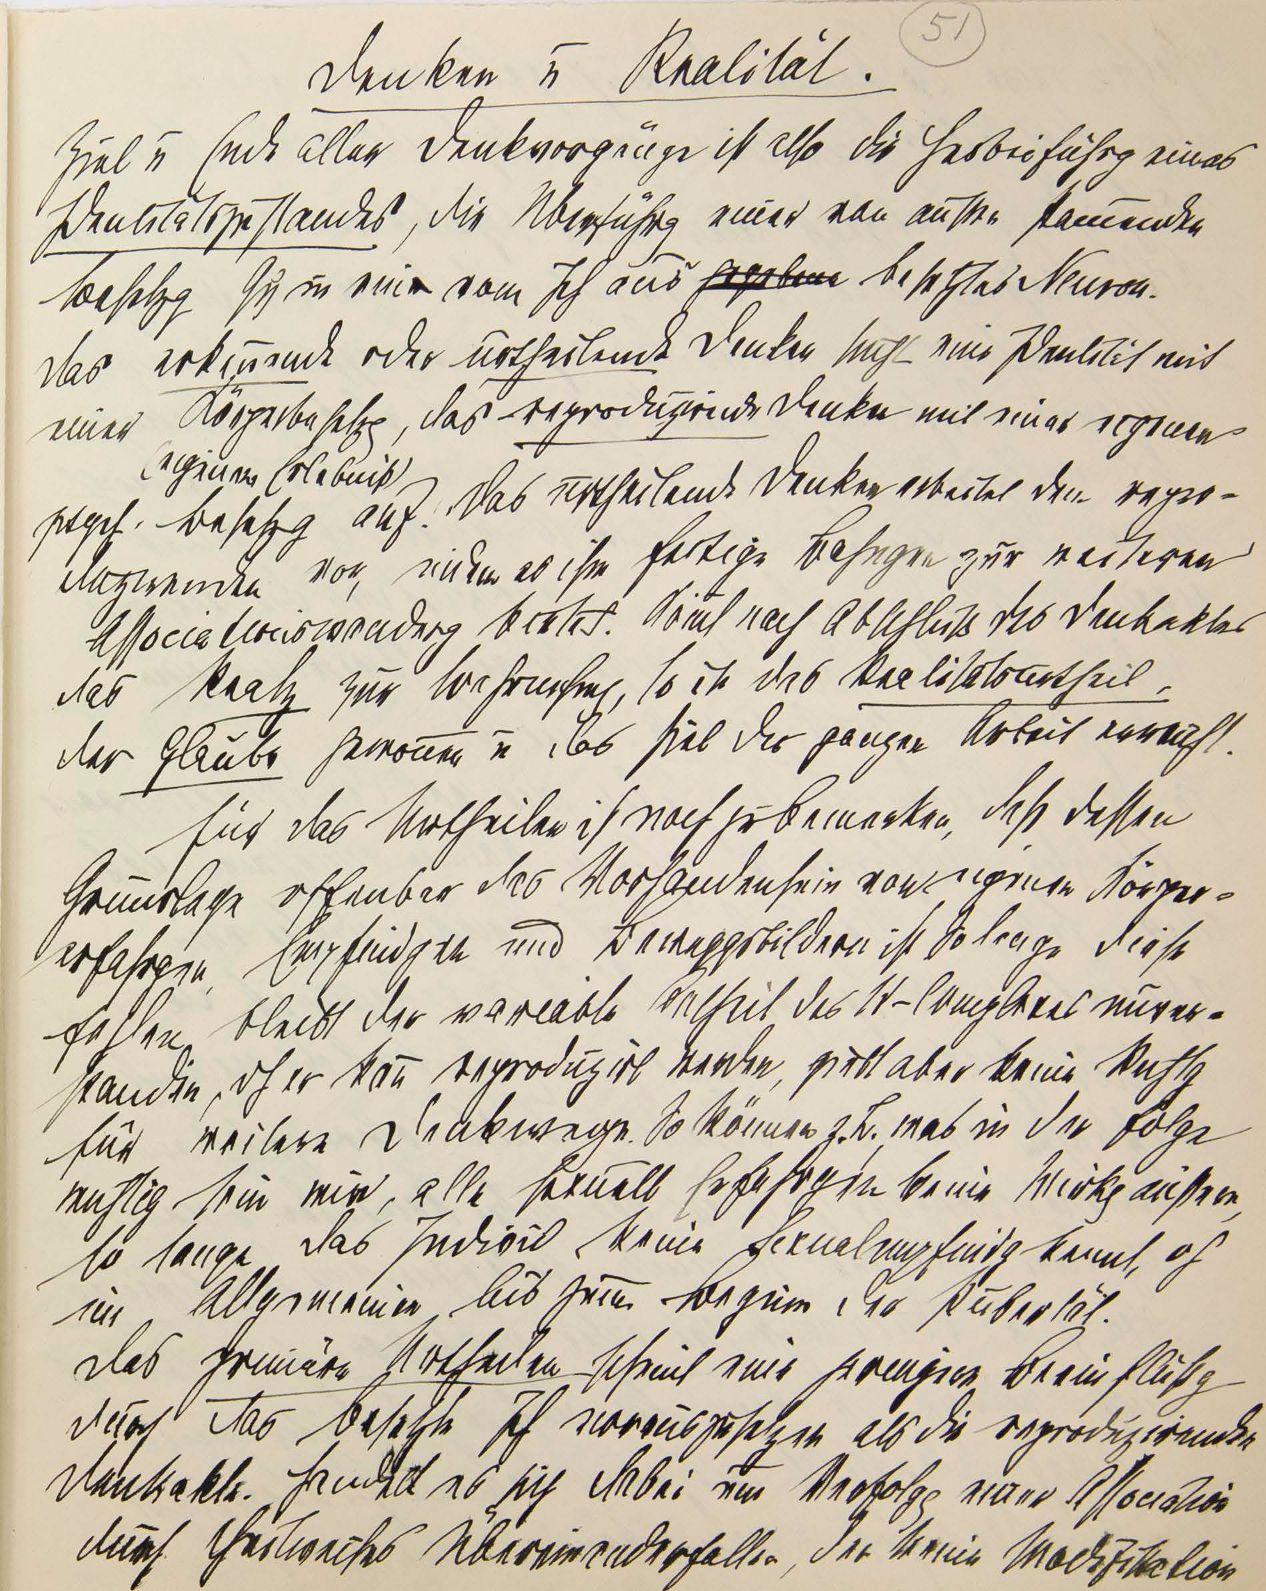 51
Denken u Realität.
Ziel u Ende aller Denkvorgänge ist also die Herbeiführg eines
Identitätszustandes, die Überführg einer von außen stammenden
Besetzg Qή in ein vom Ich aus besetztes Neuron.
Das erkennende oder urtheilende Denken sucht eine Identität mit
einer Körperbesetzg, das reproduzirende Denken mit einer eigenen
(eigenes Erlebniß)
psych. Besetzg auf. Das urtheilende Denken arbeitet dem repro-
duzirenden vor, indem es ihm fertige Bahngen zur weiteren
Associationswanderg bietet. Kommt nach Abschluß des Denkaktes
das Realz zur Wahrnehmg, so ist das Realitätsurtheil,
der Glaube gewonnen u das Ziel der ganzen Arbeit erreicht.
Für das Urtheilen ist noch zu bemerken, daß dessen
Grundlage offenbar das Vorhandensein von eigenen Körper-
erfahrgen, Empfindgen und Beweggsbildern ist. Solange diese
fehlen, bleibt der variable Antheil des W-Complexes unver-
standen, dh er kann reproduzirt werden, giebt aber keine Richtg
für weitere Denkwege. So können z.B., was in der Folge
wichtig sein wird, alle sexuell Erfahrgen keine Wirkg äußern,
so lange das Individ keine Sexualempfindg kennt, dh
im Allgemeinen bis zum Beginn der Pubertät.
Das primäre Urtheilen scheint eine geringere Beeinflußg
durch das besetzte Ich vorauszusetzen als die reproduzirenden
Denkakte. Handelt es sich dabei um Verfolgg einer Association
durch theilweises Übereinanderfallen, der keine Modifikation